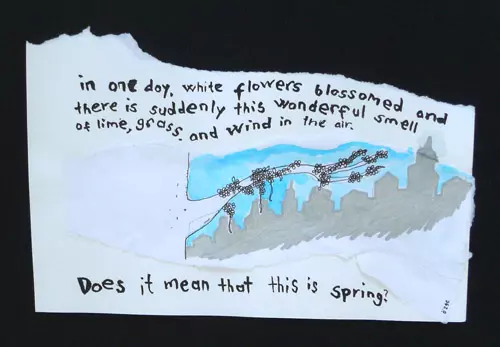 in one day, white flowers blossomed and
there is suddenly this wonderful smell
of lime, grass and wind in the air.
Does it mean that this is spring?